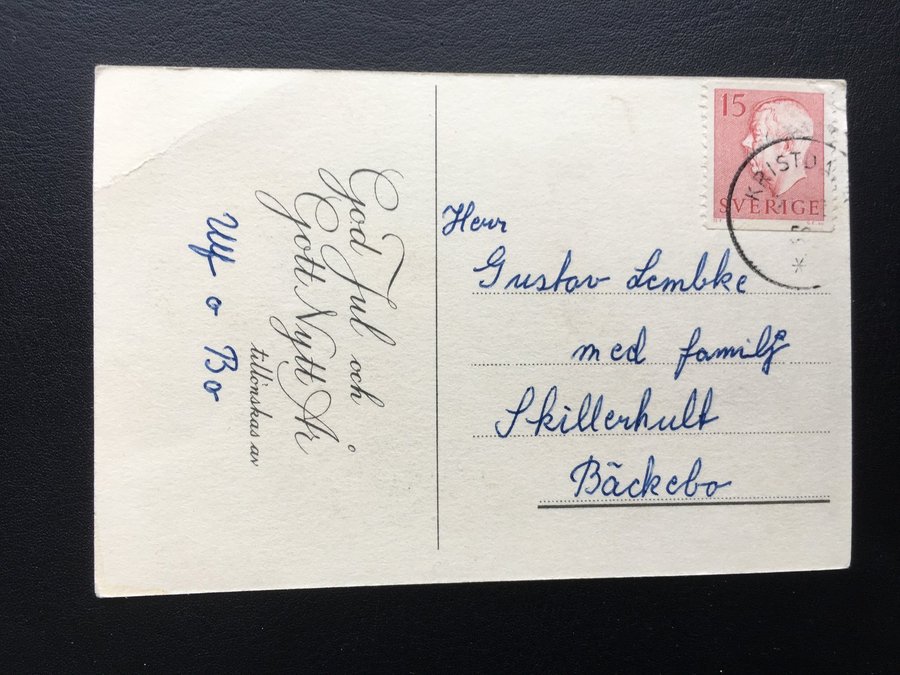 God Jul och
Gott Nytt År
tillönskas av
Ulf o Bo
15
SVERIGE
Herr
Gustav Lembke
med familj
Skillerhult
Bäckebo